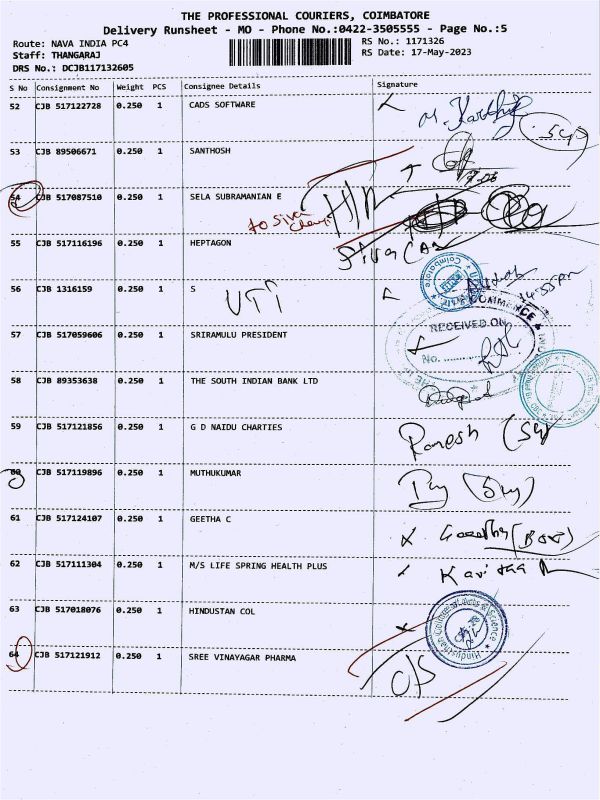 THE PROFESSIONAL COURIERS, COIMBATORE
Delivery Runsheet - MO - Phone No.:0422-3505555 - Page No.:5
Route: NAVA INDIA PC4 RS No.: 1171326
Staff: THANGARAJ RS Date: 17-May-2023
DRS No.: DCJB117132605
S No Consignment No Weight PCS Consignee Details Signature
52 CJB 517122728 0.250 1 CADS SOFTWARE
53 CJB 89506671 0.250 1 SANTHOSH
54 CJB 517087510 0.250 1 SELA SUBRAMANIAN E
55 CJB 517116196 0.250 1 HEPTAGON
56 CJB 1316159 0.250 1 S
UTI
57 CJB 517059606 0.250 1 SRIRAMULU PRESIDENT
RECEIVED ON
No.
58 CJB 89353638 0.250 1 THE SOUTH INDIAN BANK LTD
59 CJB 517121856 0.250 1 G D NAIDU CHARTIES Ramesh
60 CJB 517119896 0.250 1 MUTHUKUMAR
61 CJB 517124107 0.250 1 GEETHA C
62 CJB 517111304 0.250 1 M/S LIFE SPRING HEALTH PLUS
63 CJB 517018076 0.250 1 HINDUSTAN COL
64 CJB 517121912 0.250 1 SREE VINAYAGAR PHARMA